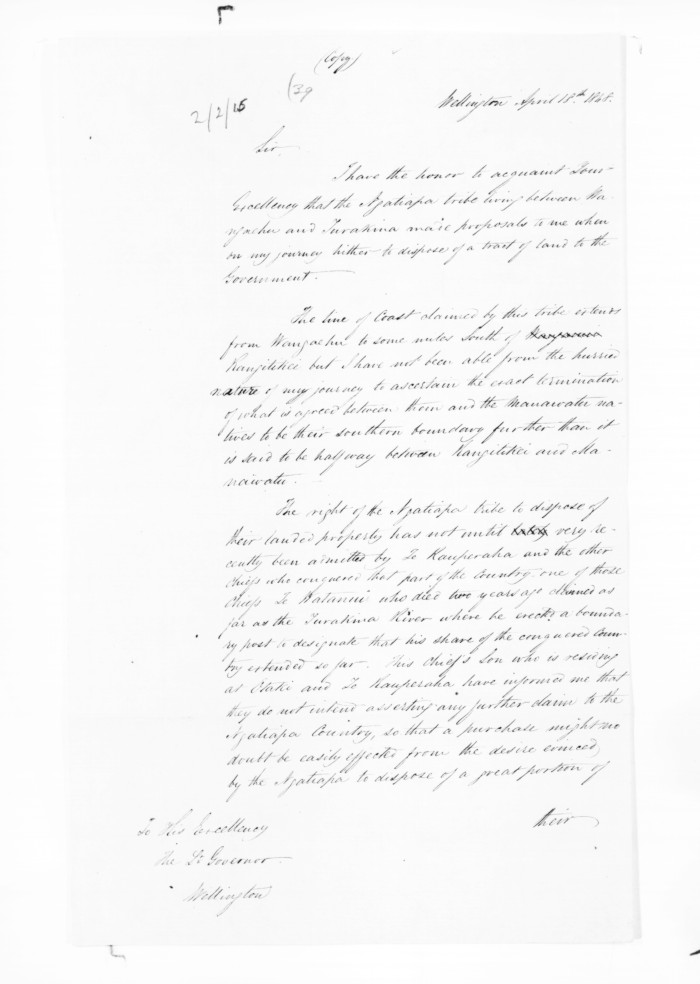 (Copy)
(39
2/2/15
Wellington April 18th 1848.
Sir.
I have the honor to acquaint Your
Excellency that the Ngatiapa tribe living between Wa-
ngaehu and Turakina made proposals to me when
on my journey hither to dispose of a tract of land to the
Government.
The line of Coast claimed by this tribe extends
from Wangaehu to some miles South of
Rangitikei but I have not been able from the hurried
nature of my journey to ascertain the exact termination
of what is agreed between them and the Manawatu na-
tives to be their southern boundary further than it
is said to be halfway between Rangitikei and Ma-
nawatu.
The right of the Ngatiapa tribe to dispose of
their landed property has not until lately very re-
cently been admitted by Te Rauperaha and the other
chiefs who conquered that part of the Country, one of those
Chiefs Te Watanui who died two years ago claimed as
far as the Turakina River where he erected a bounda-
ry post to designate that his share of the conquered Coun-
try extended so far. This Chief's Son who is residing
at Otaki and Te Rauperaha have informed me that
they do not intend asserting any further claim to the
Ngatiapa Country, so that a purchase might no
doubt be easily effected from the desire evinced
by the Ngatiapa to dispose of a great portion of
their
To His Excellency
The Lt Governor
Wellington